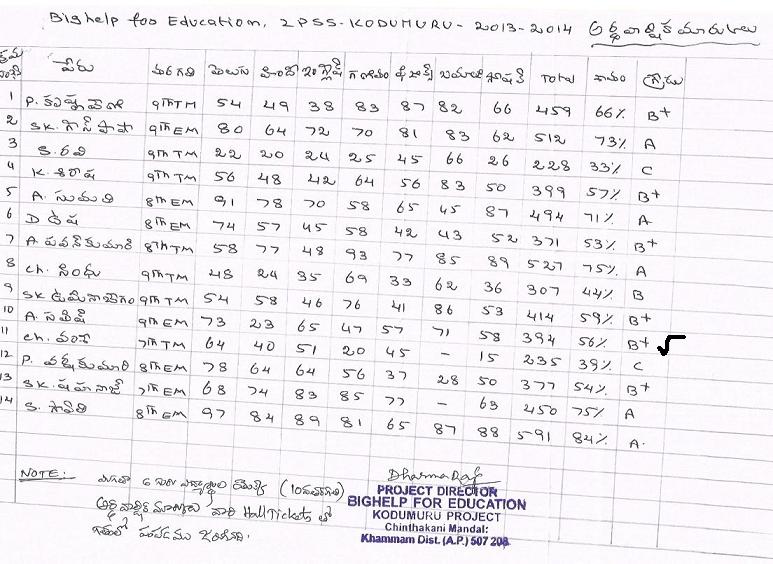 Bighelp for Education, ZPSS-KODUMURU - 2013-2014 అర్థవార్షిక మార్కులు
క్రమ సంఖ్య పేరు తరగతి తెలుగు హిందీ ఇంగ్లీష్ గణితం ఫిజిక్స్ బయాలజీ సోషల్ TOTAL శాతం గ్రేడు
1 P. 9th TM 54 49 38 83 87 82 66 459 66% B+
2 SK. 9th EM 80 64 72 70 81 83 62 512 73% A
3 S. రవి 9th TM 22 20 24 25 45 66 26 228 33% C
4 K. శిరీష 9th TM 56 48 42 64 56 83 50 399 57% B+
5 A. సుమతి 8th EM 91 78 70 58 65 45 87 494 71% A
6 D 8th EM 74 57 45 58 42 43 52 371 53% B+
7 A. పవన్ కుమారి 8th TM 58 77 48 93 77 85 89 527 75% A
8 Ch. సింధు 9th TM 48 24 35 69 33 62 36 307 44% B
9 SK. 9th TM 54 58 46 76 41 86 53 414 59% B+
10 A. 9th EM 73 23 65 47 57 71 58 394 56% B+ √
11 Ch. 7th TM 64 40 51 20 45 - 15 235 39% C
12 P. 8th EM 78 64 64 56 37 28 50 377 54% B+
13 SK. 7th EM 68 74 83 85 77 - 63 450 75% A
14 S. 8th EM 97 84 89 81 65 87 88 591 84% A.
NOTE: మిగతా 6 గురు విద్యార్థుల యొక్క (10వతరగతి)
అర్థవార్షిక మార్కులు వారి Hall Tickets తో
గతంలో పంపడము జరిగినది.
DharmaRaj
PROJECT DIRECTOR
BIGHELP FOR EDUCATION
KODUMURU PROJECT
Chinthakani Mandal:
Khammam Dist. (A.P.) 507 208